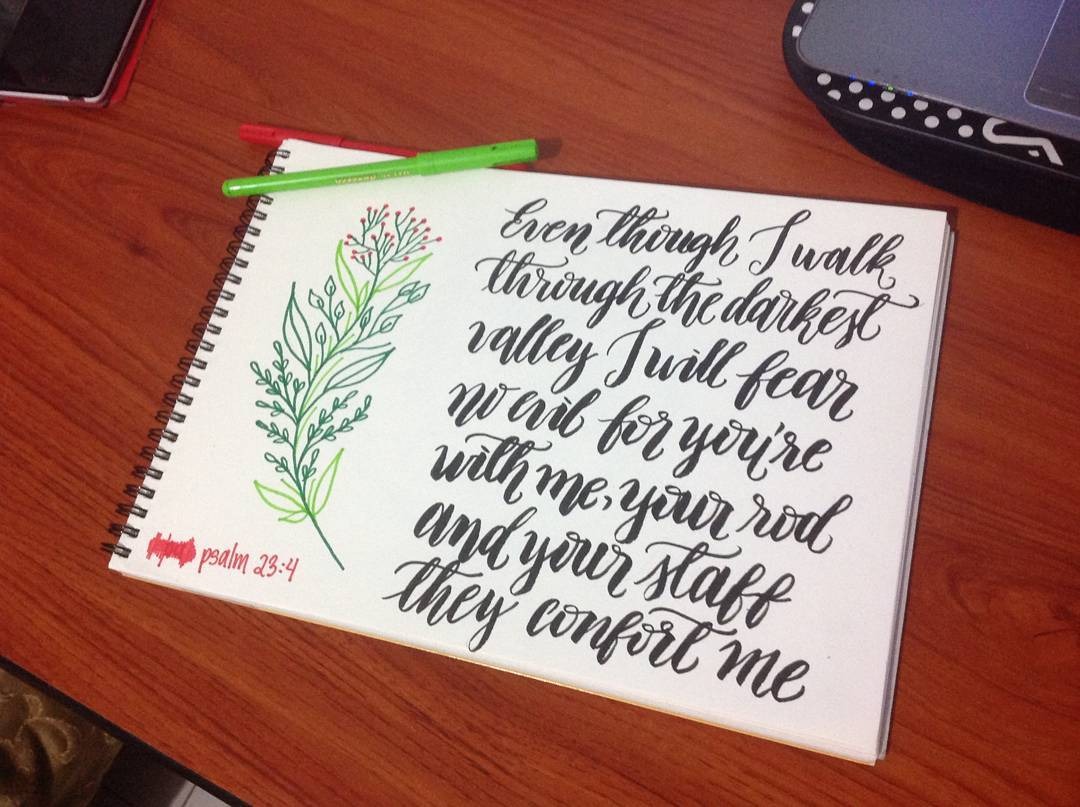 Even though I walk
through the darkest
valley I will fear
no evil for you're
with me, your rod
and your staff
they confort me
psalm 23:4